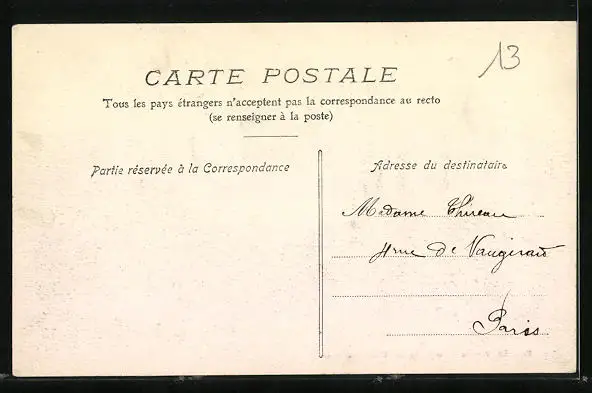 13
CARTE POSTALE
Tous les pays étrangers n'acceptent pas la correspondance au recto
(se renseigner à la poste)
Partie réservée à la Correspondance
Adresse du destinataire
Madame Thireau
rue De Vaugirard
Paris